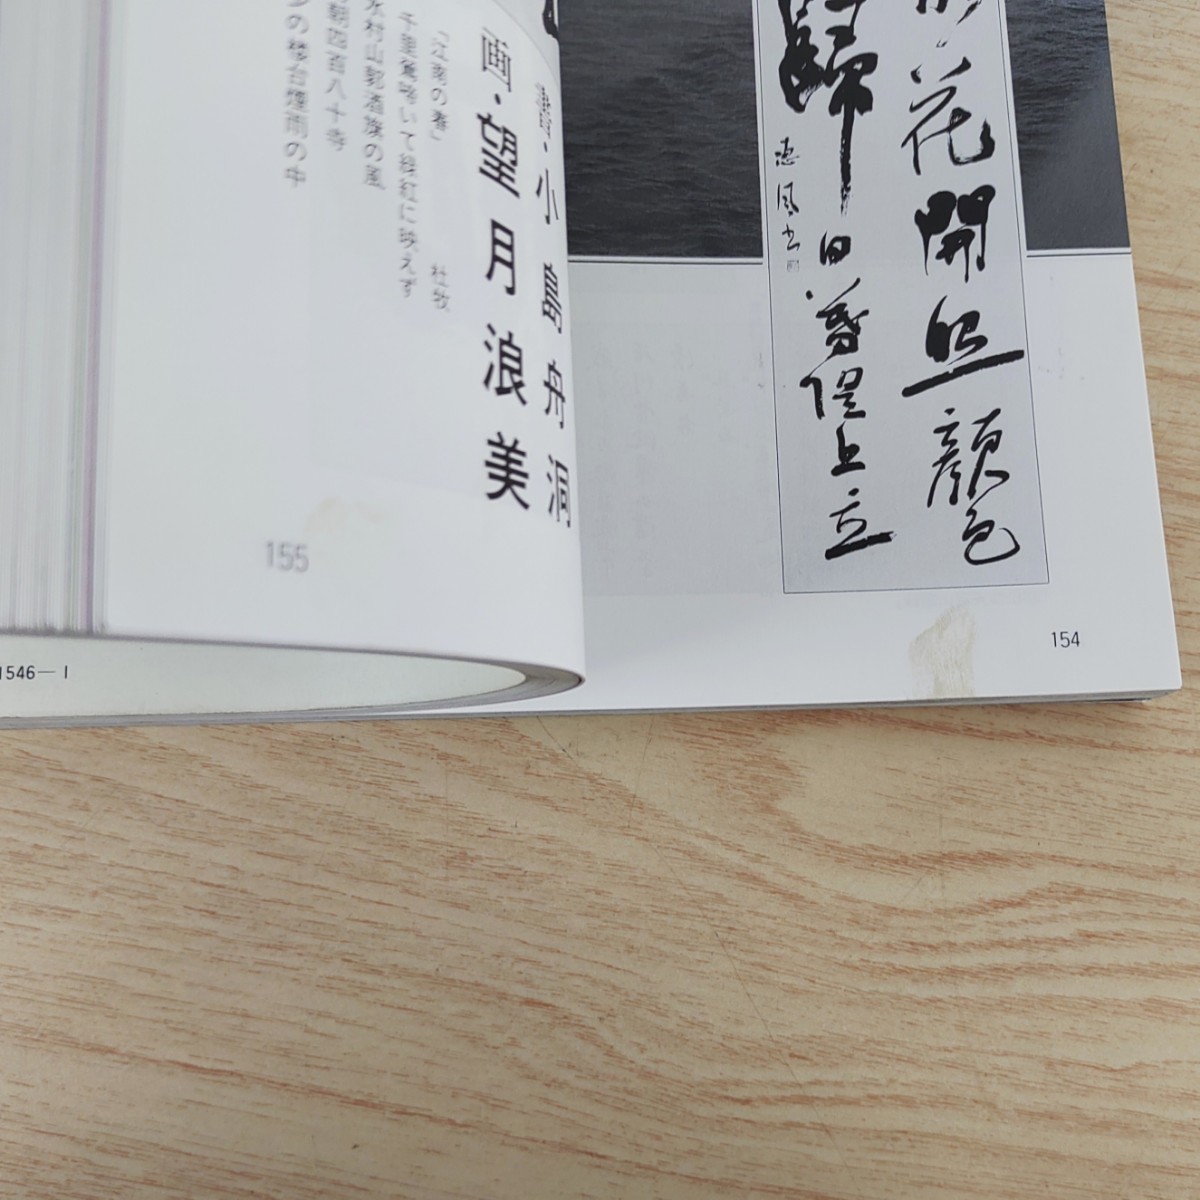 花開照顔色
帰 日暮堤上立
恵風書
154
書・小島舟洞
画・望月浪美
「江南の春」 杜牧
千里鶯啼いて緑紅に映えず
水村山郭酒旗の風
朝四百八十寺
の楼台煙雨の中
155
1546—1